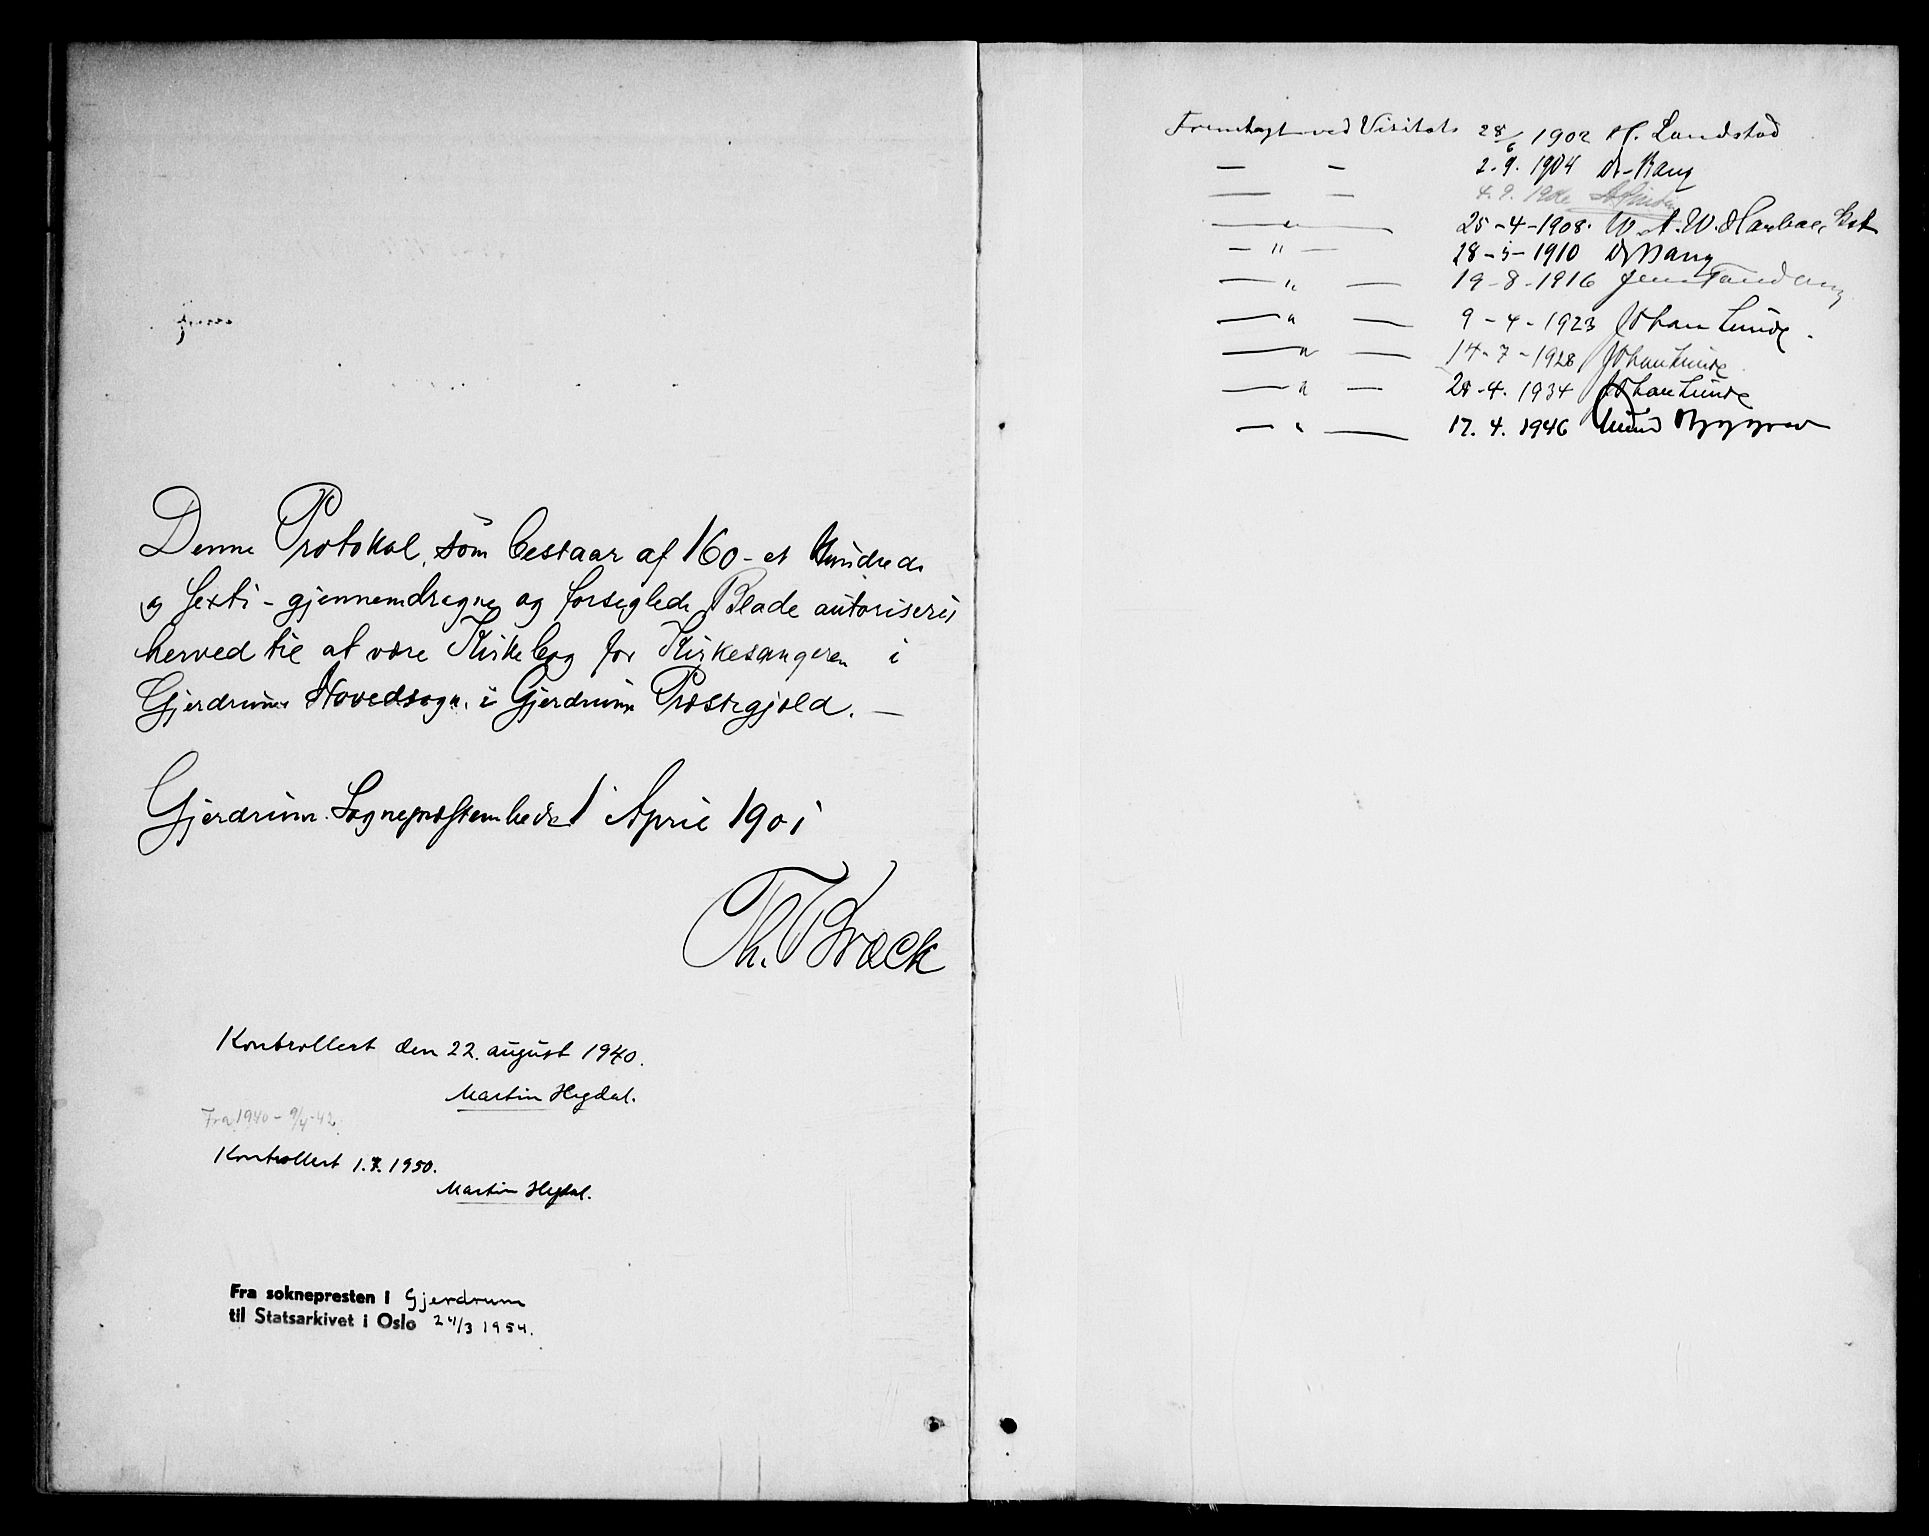 Denne Protokol, som bestaar af 160 - et hundrede
og sexti - gjennemdragne og forseglede Blade autoriseres
herved til at være Kirkebog for Kirkesangeren i
Gjerdrums Hovedsogn i Gjerdrum Præstegjeld. —
Gjerdrum Sognepræstembede 1 April 1901
Th. Bræck
Kontrollert den 22. august 1940.
Martin Hegdal.
Fra 1940 - 9/4-42.
Kontrollert 1.7.1950.
Martin Hegdal.
Fra soknepresten i Gjerdrum
til Statsarkivet i Oslo 24/3 1954.
Fremlagt ved Visitats 28/6 1902 H. Landstad
— — 2.9. 1904 Dr Bang
— — 4.9.
— " — 25-4-1908. W. A. W.
— " — 28-5-1910 Dr Bang
— " — 19-8-1916 Jens Tandberg
— " — 9-4-1923 Johan Lunde.
— " — 14-7-1928 Johan Lunde
— " — 28-4. 1934 Johan Lunde
— " — 17. 4. 1946